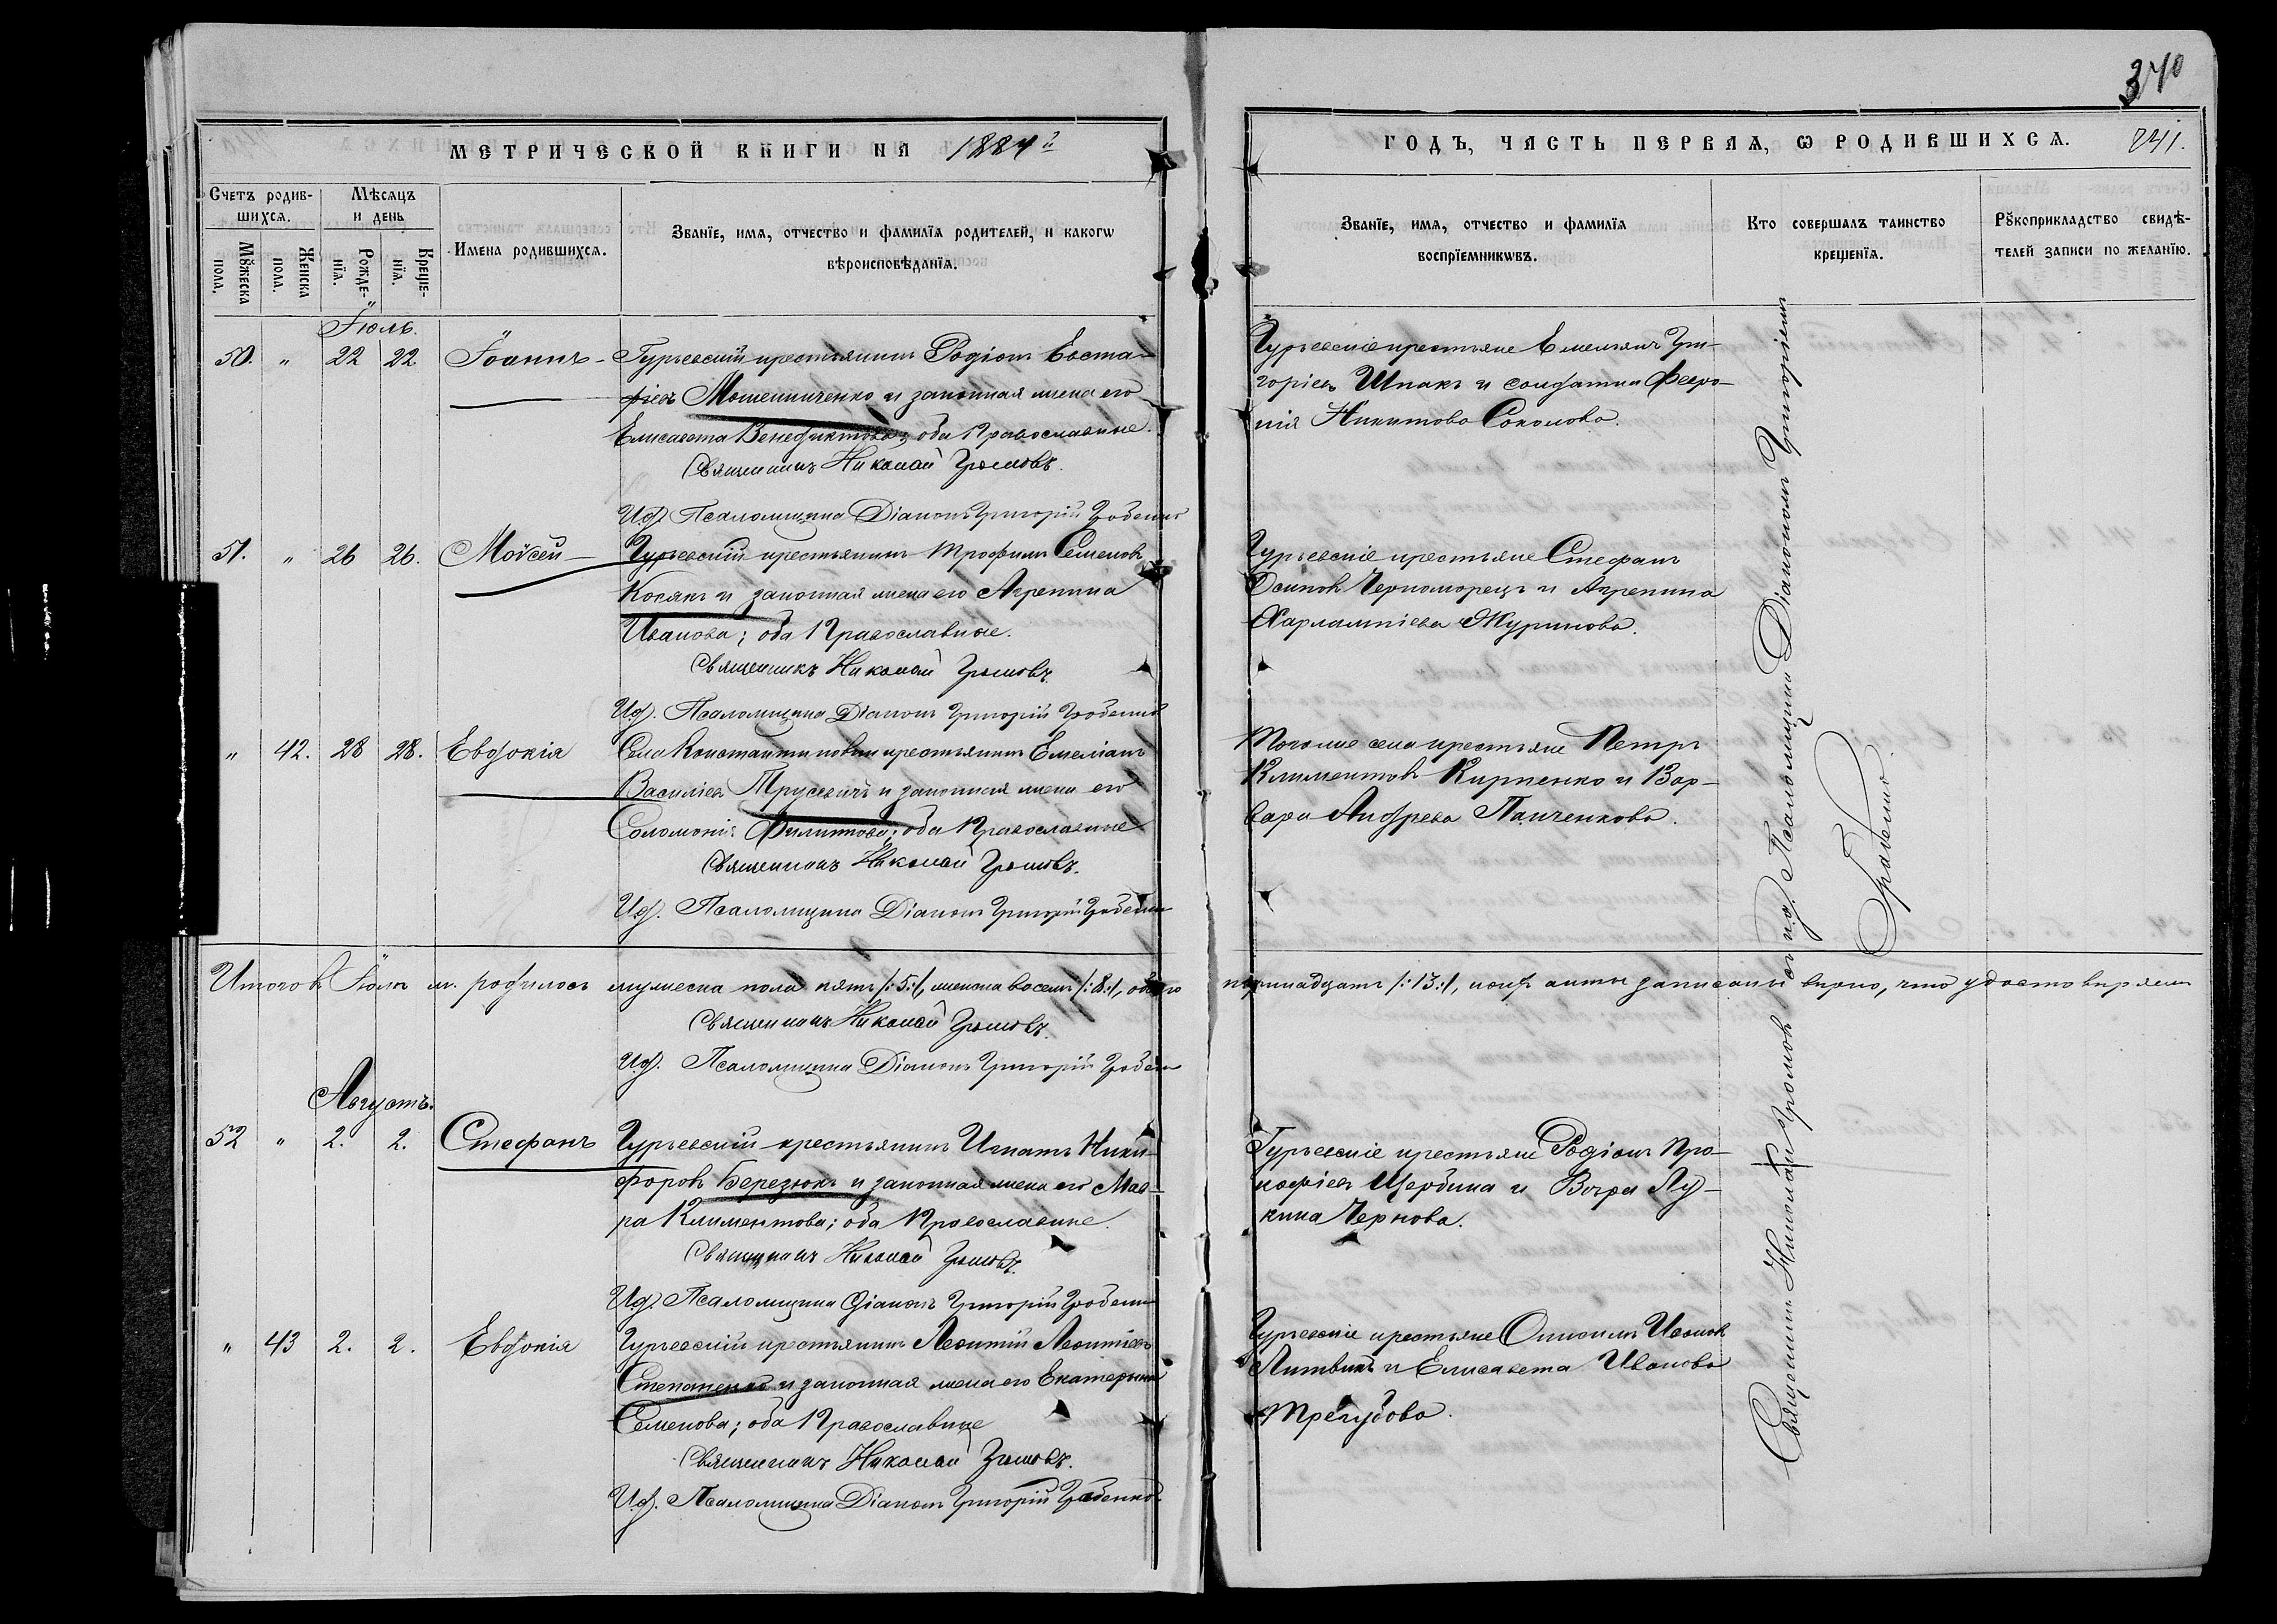 340
МЕТРИЧЕСКОЙ КНИГИ НА 1884й
ГОДЪ, ЧАСТЬ ПЕРВАЯ, Ѡ РОДИВШИХСѦ. 241.
Счетъ родив-
шихсѧ.
Мѣсѧцъ
и день
Мꙋжеска
пола.
Женска
пола.
Рожде-
нїѧ.
Креще-
нїѧ.
Имена родившихсѧ.
Званїе, имѧ, отчество и фамилїѧ родителей, и какогѡ
вѣроисповѣданїѧ.
Званїе, имѧ, отчество и фамилїѧ
воспрїемникѡвъ.
Кто совершалъ таинство
крещенїѧ.
Рꙋкоприкладство свидѣ-
телей записи по желанїю.
Іюль.
50. " 22 22 Іоаннъ
Гурьевскій крестьянинъ Родіонъ Евста-
фіевъ Мошенниченко и законная жена его
Елисавета Венедиктова; оба Православные.
Священникъ Николай Громовъ.
И.д. Псаломщика Діаконъ Григорій Гробенко
Гурьевскіе крестьяне Емельянъ Гри-
горіевъ Шпакъ и солдатка Февро-
нія Никитова Соколова.
51. " 26 26. Моѵсей
Гурьевскій крестьянинъ Трофимъ Семеновъ
Косякъ и законная жена его Агрепина
Иванова; оба Православные.
Священникъ Николай Громовъ.
И.д. Псаломщика Діаконъ Григорій Гробенко
Гурьевскіе крестьяне Стефанъ
Осиповъ Черноморецъ и Агрепина
Харлампіева Журикова.
" 42. 28 28. Евдокія
Села Константиновки крестьянинъ Емеліанъ
Василіевъ Трусевичъ и законная жена его
Соломонія Филиппова; оба Православные
Священникъ Николай Громовъ.
И.д. Псаломщика Діаконъ Григорій Гробенко
Того же села крестьяне Петръ
Климентовъ Кирпенко и Вар-
вара Андреева Панченкова.
Итого въ Іюлѣ м. родилось мужеска пола пять /:5:/, женска восемь /:8:/, обоего тринадцать /:13:/, коихъ акты записаны вѣрно, что удостовѣряемъ
Священникъ Николай Громовъ.
И.д. Псаломщика Діаконъ Григорій Гробенко
Августъ.
52 " 2. 2. Стефанъ
Гурьевскій крестьянинъ Игнатъ Ники-
форовъ Березюкъ и законная жена его Мав-
ра Климентова; оба Православные.
Священникъ Николай Громовъ.
И.д. Псаломщика Діаконъ Григорій Гробенко
Гурьевскіе крестьяне Родіонъ Про-
кофіевъ Щербина и Вѣра Лу-
кина Чернова.
" 43 2. 2. Евдокія
Гурьевскій крестьянинъ Леонтій Леонтіевъ
Степаненко и законная жена его Екатерина
Семенова; оба Православные
Священникъ Николай Громовъ.
И.д. Псаломщика Діаконъ Григорій Гробенко
Гурьевскіе крестьяне Ивановъ
Литвинъ и Елисавета Иванова
Трегубова.
Священникъ Николай Громовъ съ и.д. Псаломщика Діакономъ Григоріемъ
Гробенко